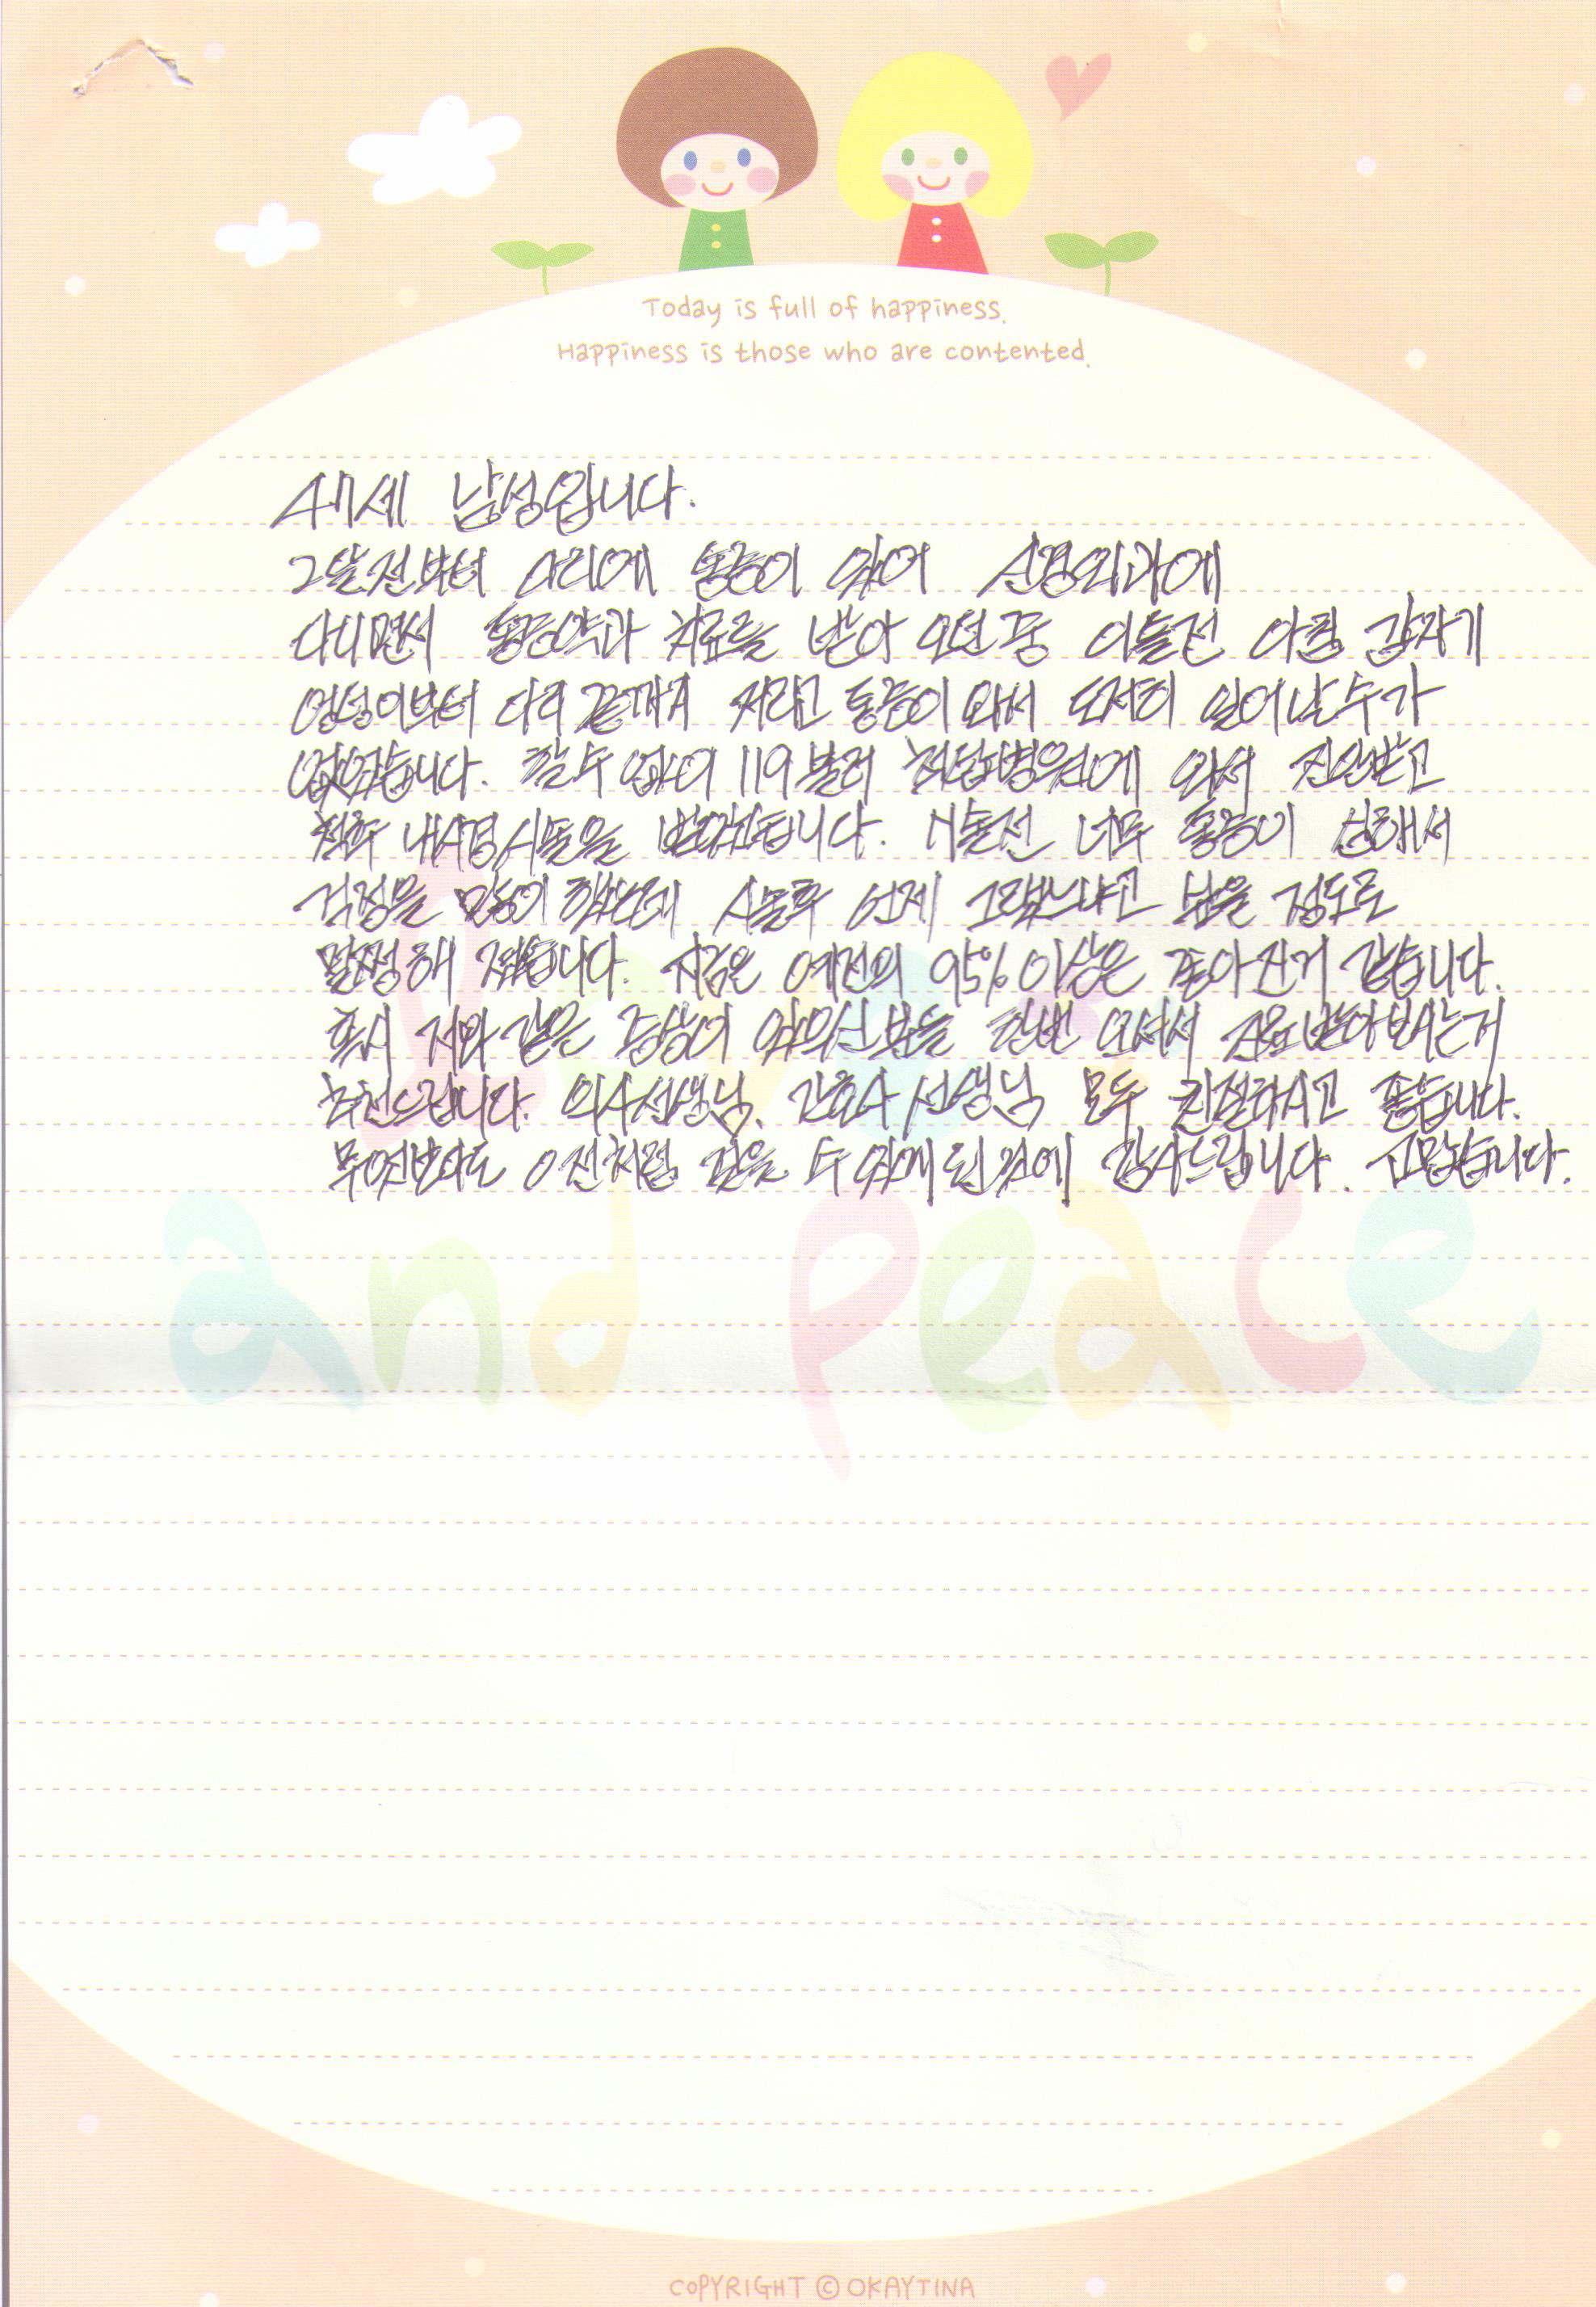 Today is full of happiness.
Happiness is those who are contented.
47세 남성입니다.
2달전부터 다리에 통증이 있어 신경외과에
다니면서 통증약과 치료를 받아 오던 중 이틀전 아침 갑자기
엉덩이부터 다리 끝까지 저리고 통증이 와서 도저히 일어날 수가
없었습니다. 할수 없이 119 불러 병원에 와서 진찰받고
척추 내시경 시술을 받았습니다. 시술전 너무 통증이 심해서
걱정을 많이 했는데 시술후 언제 그랬느냐고 싶을 정도로
말짱해 졌습니다. 지금은 예전의 95% 이상은 좋아진거 같습니다.
혹시 저와 같은 증상이 있으신 분들 한번 오셔서 치료받아보시는거
추천드립니다. 의사선생님, 간호사 선생님 모두 친절하시고 좋습니다.
무엇보다도 이전처럼 걸을 수 있게 된것에 감사드립니다. 고맙습니다.
and peace
COPYRIGHT © OKAYTINA